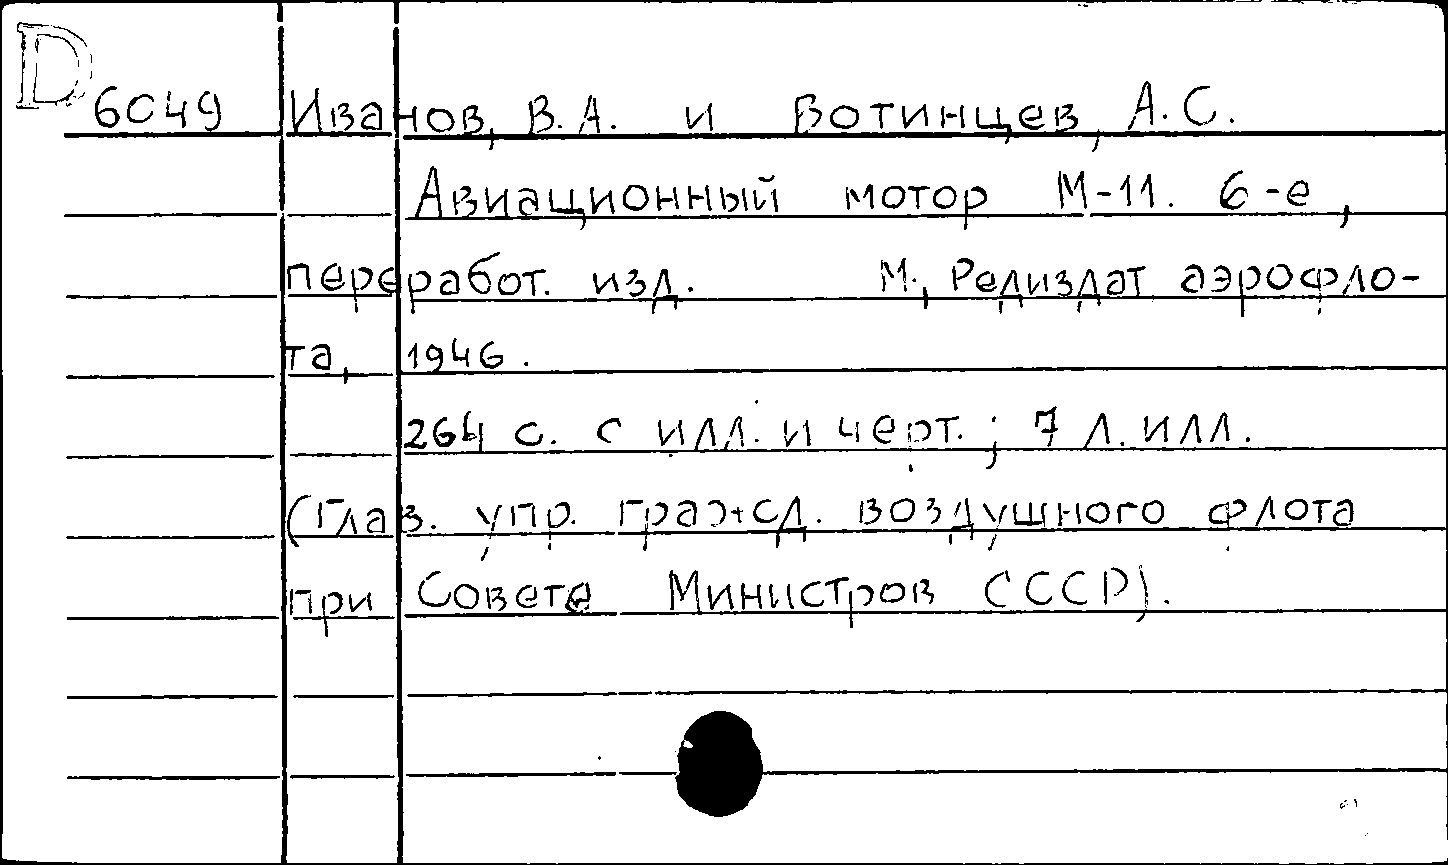 D 6049 Иванов, В.А. и Вотинцев, А.С.
Авиационный мотор М-11. 6-е,
переработ. изд. М., Редиздат аэрофло-
та, 1946.
264 с. с илл. и черт.; 7 л. илл.
(Глав. упр. гражд. воздушного флота
при Совете Министров СССР).